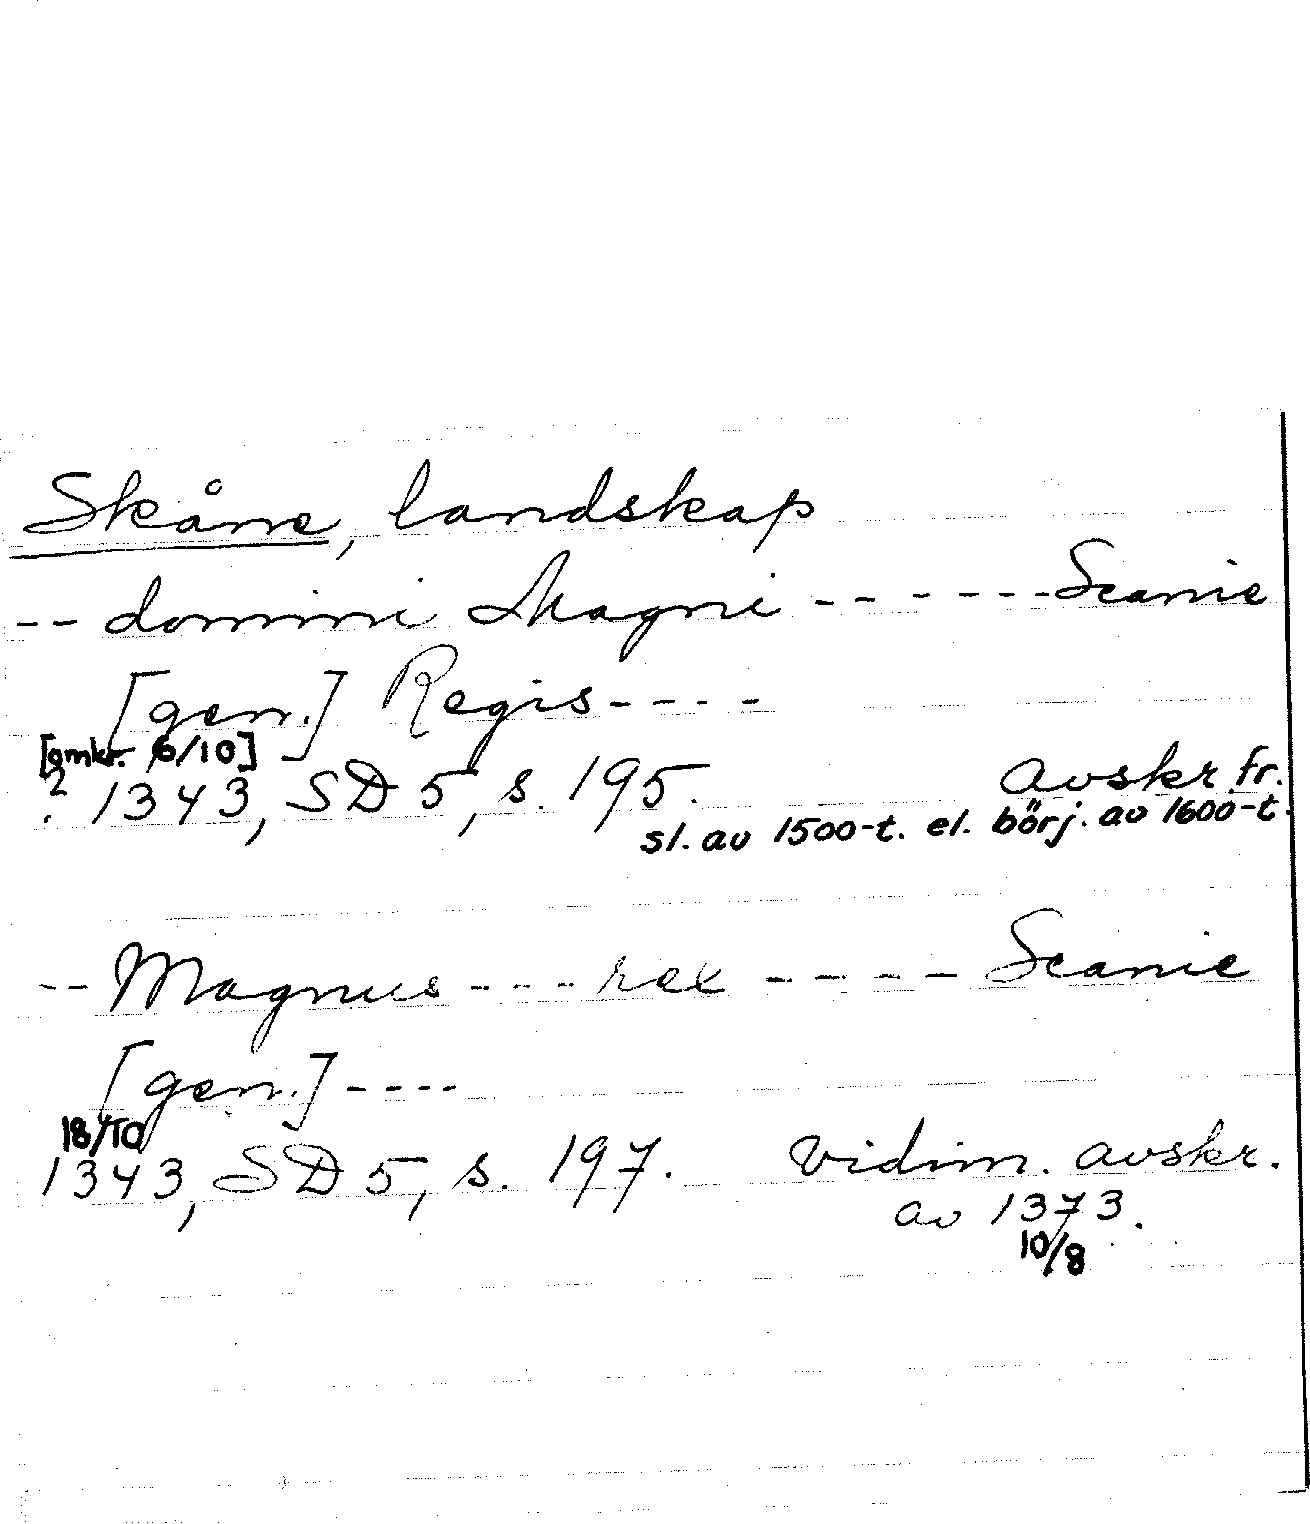 Skåne, landskap
-- domini Magni ------ Scanie
[gen.] Regis ----
[omkr. 6/10]
? 1343, SD 5, s. 195. avskr. fr.
sl. av 1500-t. el. börj. av 1600-t.
-- Magnus ---- rex ----- Scanie
[gen.] ----
18/10
1343, SD 5, s. 197. vidim. avskr.
av 1373.
10/8